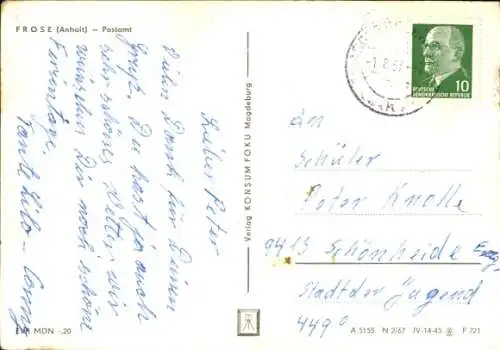 FROSE (Anhalt) – Postamt
Lieber Peter
Vielen Dank für Deinen
Gruß. Du hast ja auch
sehr schönes Wetter, wir
wünschen Dir noch schöne
Ferientage.
Tante Lilo –
EVP MDN -,20
Verlag KONSUM FOKU Magdeburg
-1.8.67
10
DEUTSCHE
DEMOKRATISCHE REPUBLIK
an
Schüler
Peter Knolle
9413 Schönheide Erzg
Stadt der Jugend
449
A 5155 N 2/67 IV-14-45 F 721